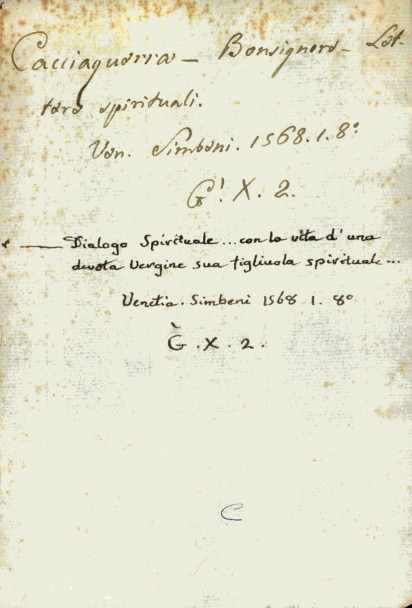 Cacciaguerra - Bonsignore - Let-
tere spirituali.
Ven. Simbeni. 1568. 1. 8º
G'. X. 2.
— Dialogo Spirituale... con la vita d'una
devota Vergine sua figliuola spirituale...
Venetia. Simbeni 1568 1. 8º
G̀. X. 2.
C